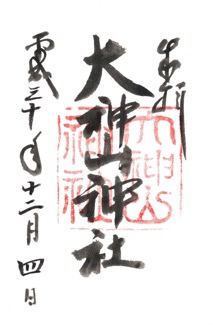 奉拝
大神山神社
平成三十年十二月四日
大神山神社